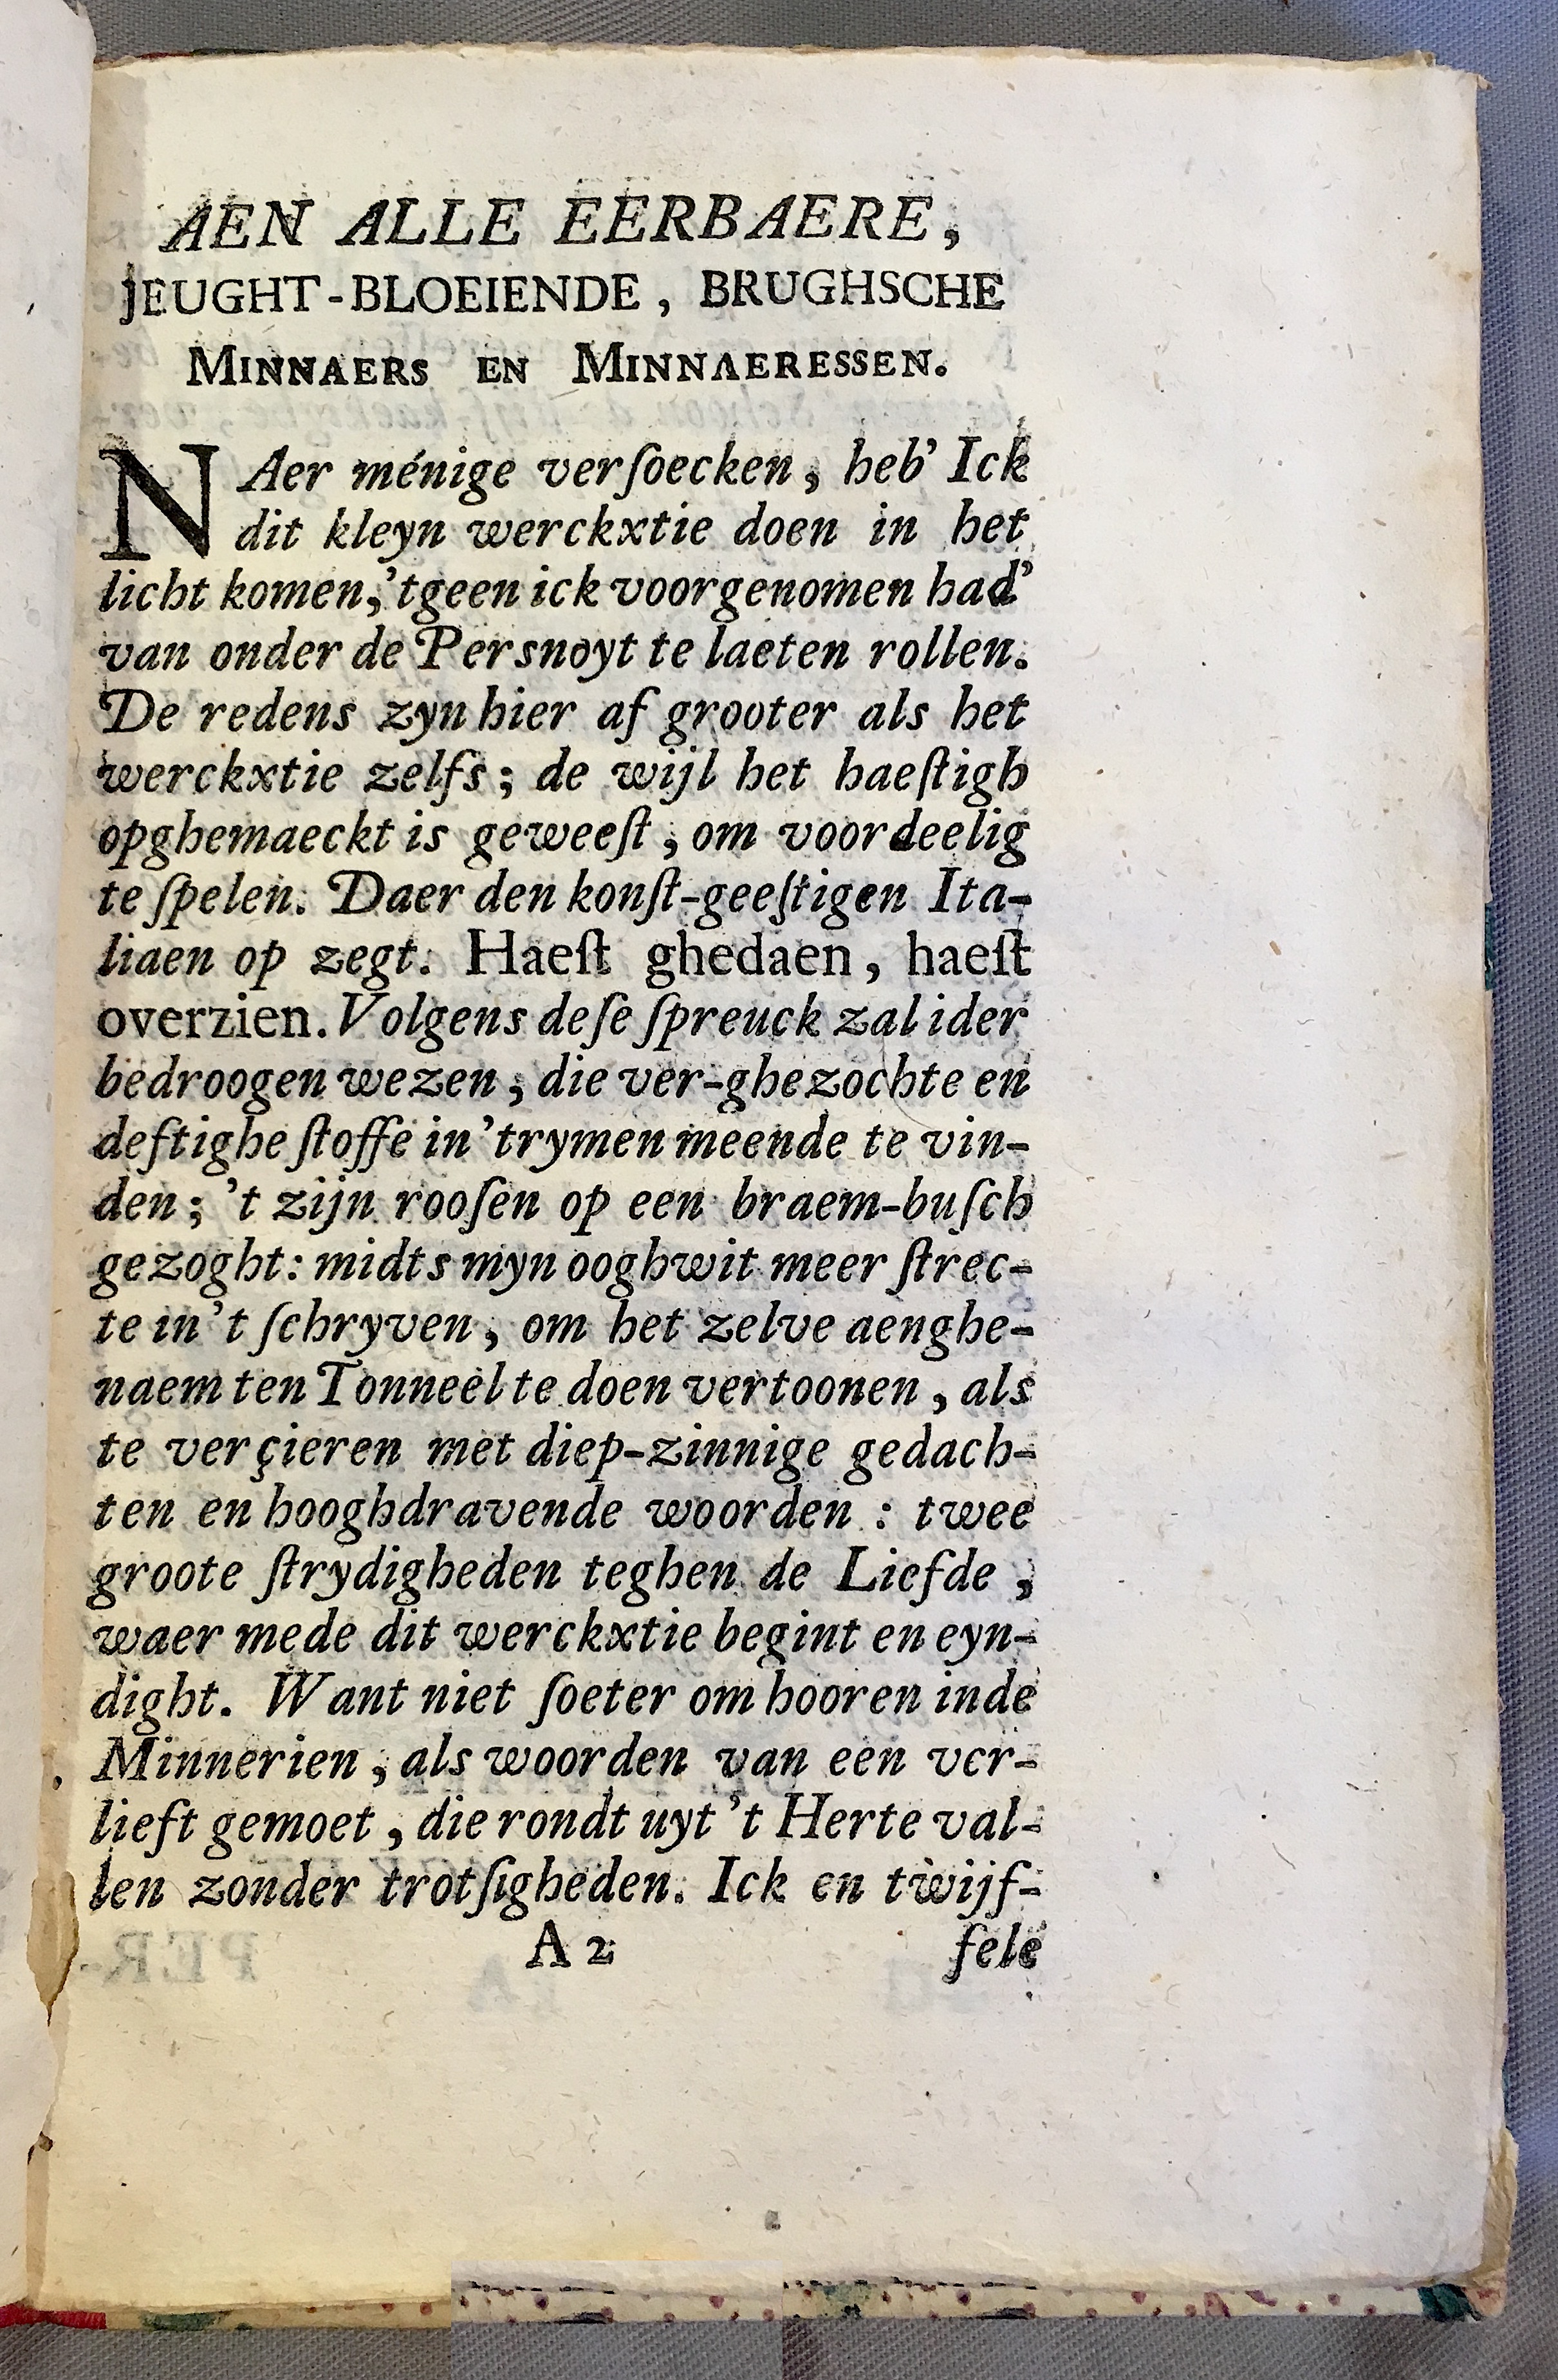 AEN ALLE EERBAERE,
JEUGHT-BLOEIENDE, BRUGHSCHE
MINNAERS EN MINNAERESSEN.
NAer ménige verſoecken, heb' Ick
dit kleyn werckxtie doen in het
licht komen,'tgeen ick voorgenomen had'
van onder de Persnoyt te laeten rollen.
De redens zyn hier af grooter als het
werckxtie zelfs; de wijl het haeſtigh
opghemaeckt is geweeſt, om voordeelig
te ſpelen. Daer den konſt-geeſtigen Ita-
liaen op zegt. Haeſt ghedaen, haeſt
overzien. Volgens deſe ſpreuck zal ider
bedroogen wezen, die ver-ghezochte en
deftighe ſtoffe in'trymen meende te vin-
den; 't zijn rooſen op een braem-buſch
gezoght: midts myn ooghwit meer ſtrec-
te in't ſchryven, om het zelve aenghe-
naem ten Tonneel te doen vertoonen, als
te verçieren met diep-zinnige gedach-
ten en hooghdravende woorden : twee
groote ſtrydigheden teghen de Liefde,
waer mede dit werckxtie begint en eyn-
dight. Want niet ſoeter om hooren inde
Minnerien, als woorden van een ver-
lieft gemoet, die rondt uyt 't Herte val-
len zonder trotſigheden. Ick en twijf-
A 2 fele